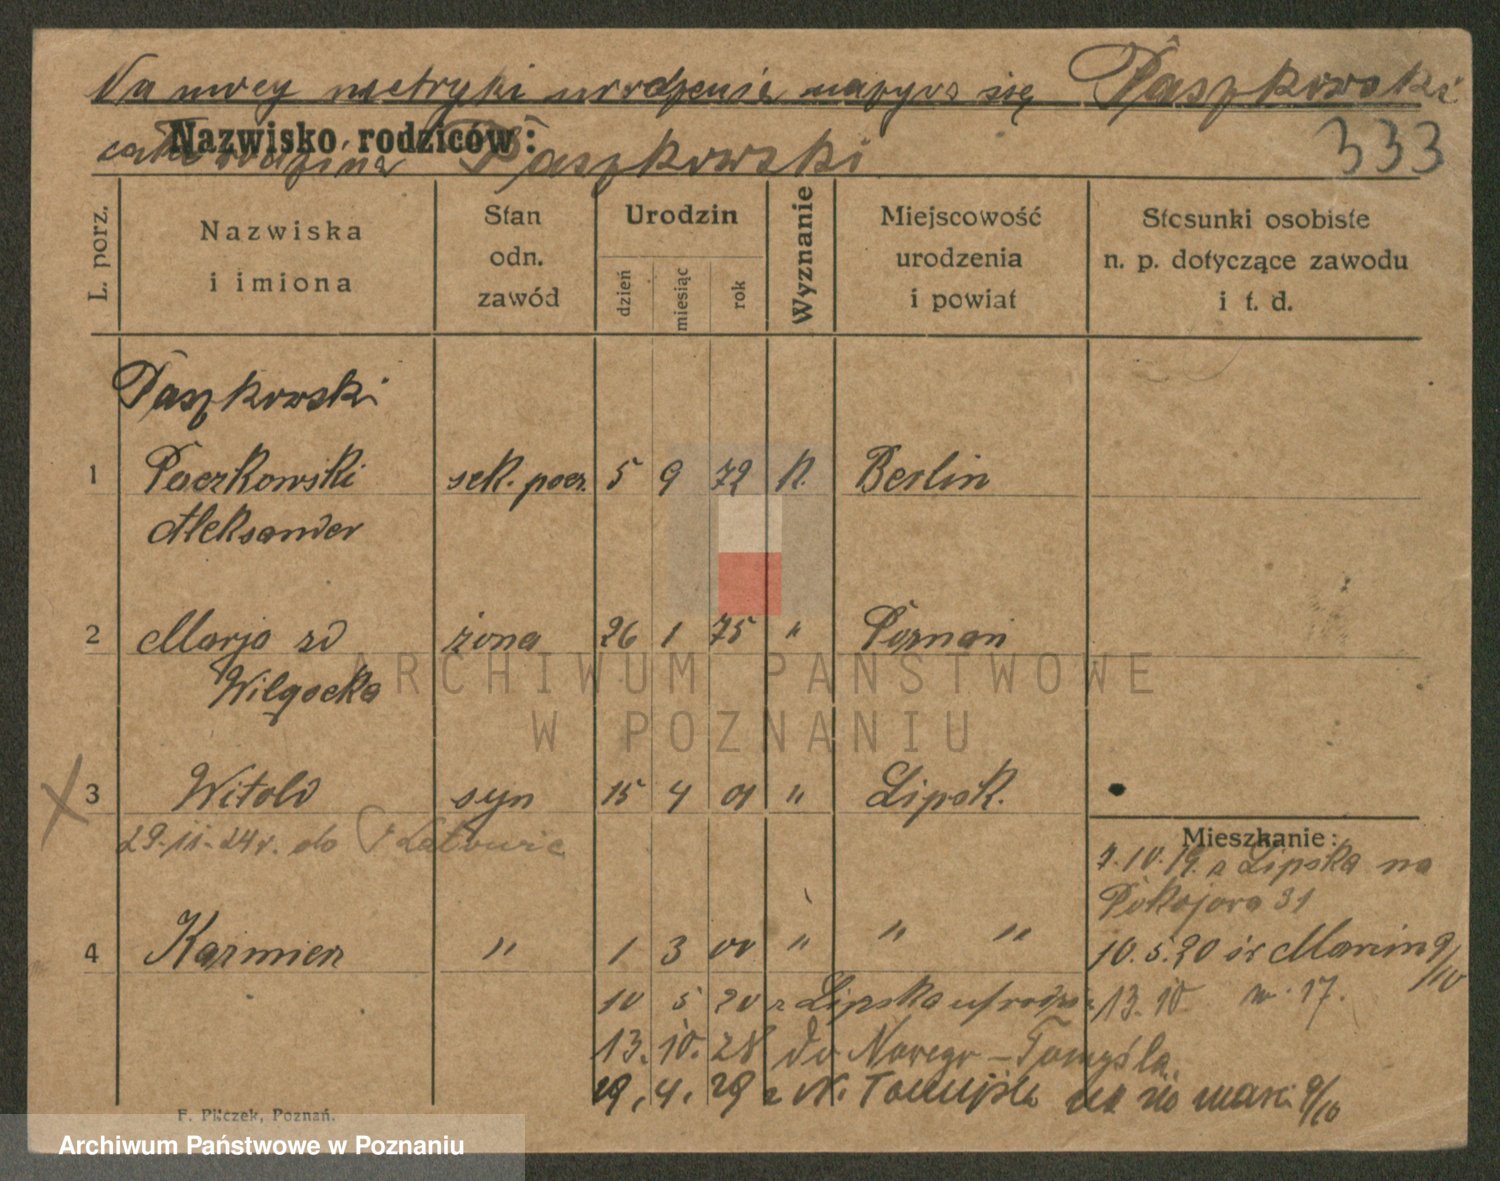 Na mocy metryki urodzenia napisa się Paszkowski
cała rodzina Paszkowski
Nazwisko rodziców:
333
L. porz.
Nazwiska
i imiona
Stan
odn.
zawód
Urodzin
dzień
miesiąc
rok
Wyznanie
Miejscowość
urodzenia
i powiat
Stosunki osobiste
n. p. dotyczące zawodu
i t. d.
Paszkowski
1 Paczkowski sek. pocz. 5 9 72 k. Berlin
Aleksander
2 Marja zd żona 26 1 75 " Poznań
Wilgocka
3 Witold syn 15 4 01 " Lipsk.
29.11.24r. do Katowic
Mieszkanie:
7.10.19. z Lipska na
Pokojora 31
4 Kazmierz " 1 3 00 " " "
10.5.20 św Marcin 9/10
10 5 20 z Lipska 13.10 w. 17.
13. 10. 28 do Nowego-Tomyśla.
29. 4. 29 z N. Tomyśla na św marci 9/10
F. Pilczek, Poznań.
ARCHIWUM PAŃSTWOWE
W POZNANIU
Archiwum Państwowe w Poznaniu